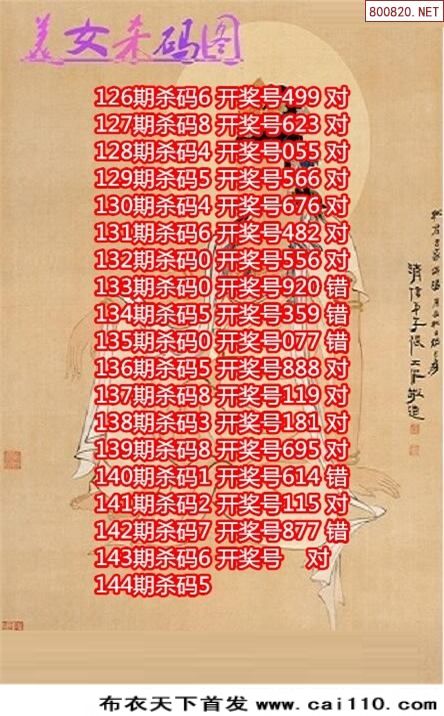 800820.NET
美女杀码图
126期杀码6 开奖号499 对
127期杀码8 开奖号623 对
128期杀码4 开奖号055 对
129期杀码5 开奖号566 对
130期杀码4 开奖号676 对
131期杀码6 开奖号482 对
132期杀码0 开奖号556 对
133期杀码0 开奖号920 错
134期杀码5 开奖号359 错
135期杀码0 开奖号077 错
136期杀码5 开奖号888 对
137期杀码8 开奖号119 对
138期杀码3 开奖号181 对
139期杀码8 开奖号695 对
140期杀码1 开奖号614 错
141期杀码2 开奖号115 对
142期杀码7 开奖号877 错
143期杀码6 开奖号 对
144期杀码5
布衣天下首发 www.cai110.com